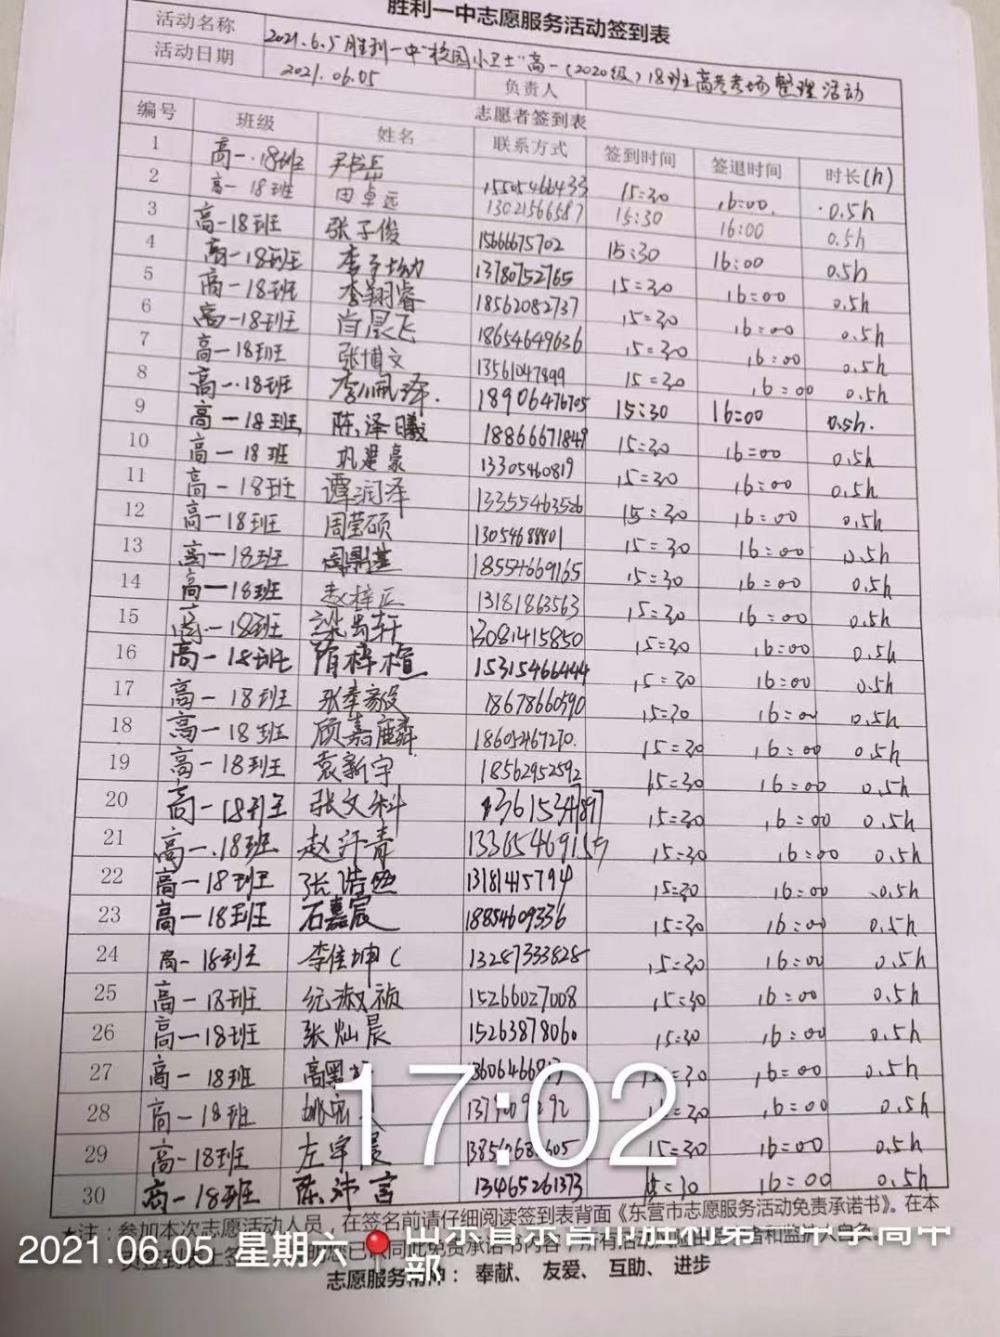 胜利一中志愿服务活动签到表
活动名称 2021.6.5胜利一中"校园小卫士"高一(2020级)18班高考考场整理活动
活动日期 2021.06.05 负责人
志愿者签到表
编号 班级 姓名 联系方式 签到时间 签退时间 时长(h)
1 高一.18班 15505466433 15:30 16:00 0.5h
2 高一18班 田卓远 13021566587 15:30 16:00 0.5h
3 高一18班 张子俊 15666675702 15:30 16:00 0.5h
4 高一18班 13780752765 15:30 16:00 0.5h
5 高一18班 李翔睿 18562082737 15:30 16:00 0.5h
6 高一18班 肖晨飞 18654649636 15:30 16:00 0.5h
7 高一18班 张博文 13561047899 15:30 16:00 0.5h
8 高一.18班 李佩泽. 18906476705 15:30 16:00 0.5h.
9 高一18班 陈泽曦 18866671849 15:30 16:00 0.5h
10 高一18班 巩建豪 13305460819 15:30 16:00 0.5h
11 高一18班 谭润泽 13355463526 15:30 16:00 0.5h
12 高一18班 周莹硕 13054688801 15:30 16:00 0.5h
13 高一18班 周鼎基 18554669165 15:30 16:00 0.5h
14 高一18班 赵梓正 13181863563 15:30 16:00 0.5h
15 高一18班 13081415850 15:30 16:00 0.5h
16 高一18班 隋梓楦 15315466444 15:30 16:00 0.5h
17 高一18班 张季毅 18678660590 15:30 16:00 0.5h
18 高一18班 顾嘉麟 15:30 16:00 0.5h
19 高一18班 袁新宇 18562952592 15:30 16:00 0.5h
20 高一18班 张文科 13615347897 15:30 16:00 0.5h
21 高一.18班 赵汗青 15:30 16:00 0.5h
22 高一18班 张浩然 13181415794 15:30 16:00 0.5h
23 高一18班 石嘉宸 18854609336 15:30 16:00 0.5h
24 高一18班 李佳坤 13287333828 15:30 16:00 0.5h
25 高一18班 纪淑祯 15266027008 15:30 16:00 0.5h
26 高一18班 张灿晨 15263878060 15:30 16:00 0.5h
27 高一18班 15:30 16:00 0.5h
28 高一18班 15:30 16:00 0.5h
29 高一18班 左宇晨 15:30 16:00 0.5h
30 高一18班 陈沛言 13465261373 16:00 0.5h
17:02
*注：参加本次志愿活动人员，在签名前请仔细阅读签到表背面《东营市志愿服务活动免责承诺书》。在本
2021.06.05 星期六 山东省东营市胜利第一中学高中
部
志愿服务精神： 奉献、 友爱、 互助、 进步